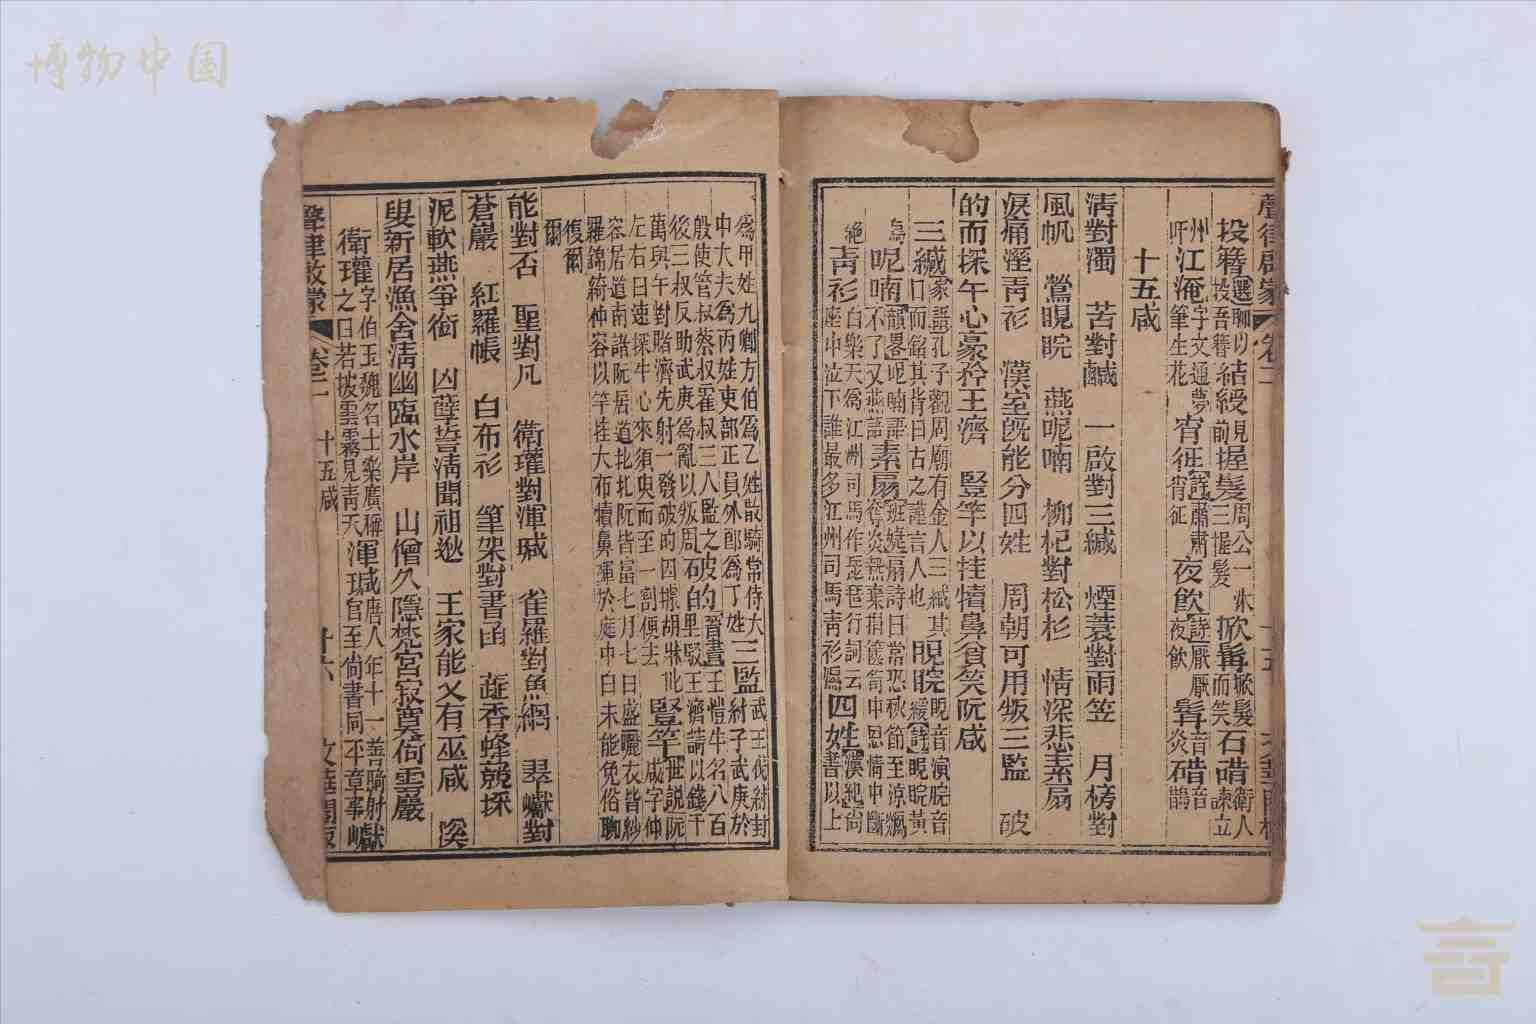 博物中国
聲律啟蒙 卷二
投簪【選】聊以投吾簪結綬見前握髮周公一沐三握髮掀髯掀髯而笑石碏衛人諫立
州吁江淹字文通夢筆生花宵征【詩】肅肅宵征夜飲【詩】厭厭夜飲髯音炎碏音鵲
十五咸
清對濁 苦對鹹 一啟對三緘 煙蓑對雨笠 月榜對
風帆 鶯睍睆 燕呢喃 柳杞對松杉 情深悲素扇
淚痛溼青衫 漢室既能分四姓 周朝可用叛三監 破
的而探午心豪矜王濟 豎竿以挂犢鼻貧笑阮咸
三緘【家語】孔子觀周廟有金人三緘其口而銘其背曰古之謹言人也睍睆睍音演睆音緩【詩】睍睆黃
鳥呢喃【韻畧】呢喃語不了又燕語素扇班婕扇詩曰常恐秋節至涼飈奪炎熱棄捐篋笥中恩情中斷
絕青衫白樂天為江州司馬作琵琶行詞云座中泣下誰最多江州司馬青衫濕四姓【漢紀】尚書以上
為甲姓九卿方伯為乙姓散騎常侍大中大夫為丙姓吏部正員外郎為丁姓三監武王伐紂封紂子武庚於
殷使管叔蔡叔霍叔三人監之後三叔反助武庚為亂以叛周破的【晉書】王愷牛名八百里駁王濟請以錢千
萬與午對賭濟先射一發破的四據胡牀叱左右曰速探牛心來須臾而至一割便去豎竿【世說】阮咸字仲
容居道南諸阮居道北北阮皆富七月七日盛曬衣皆紗羅錦綺仲容以竿挂大布犢鼻褌於庭中曰未能免俗聊
復爾爾
能對否 聖對凡 衛瓘對渾瑊 雀羅對魚網 翠巘對
蒼巖 紅羅帳 白布衫 筆架對書函 蕋香蜂競採
泥軟燕爭銜 凶孽誓淸聞祖逖 王家能乂有巫咸 溪
叟新居漁舍淸幽臨水岸 山僧久隱梵宮寂寞倚雲巖
衛瓘字伯玉魏名士樂廣稱之曰若披雲霧見青天渾瑊唐人年十一善騎射官至尚書同平章事巘
聲律啟蒙 卷二 十五咸 十六